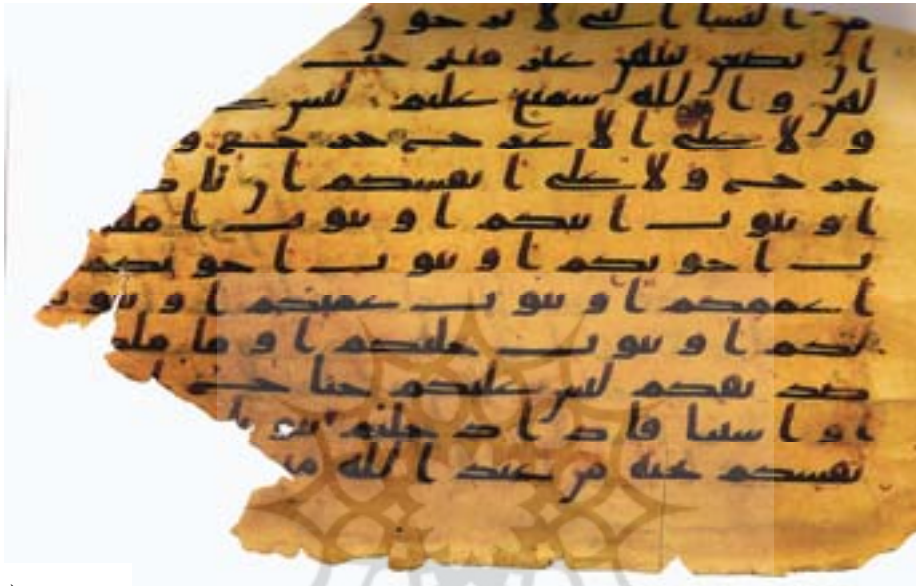 من النسا التى لا يرجون
ان يضعن ثيبهن غير متبر
لهن والله سميع عليم ليس
ولا على الاعرج حرج و
حرج ولا على انفسكم ان تا
او بيوت ابيكم او بيوت امهـ
بيوت اخونكم او بيوت اخوتكم
اعممكم او بيوت عمتكم او بيو
لكم او بيوت خلتكم او ما ملكـ
صديقكم ليس عليكم جناح
او اشتتا فاذا دخلتم بيو
نفسكم تحية من عند الله مـ